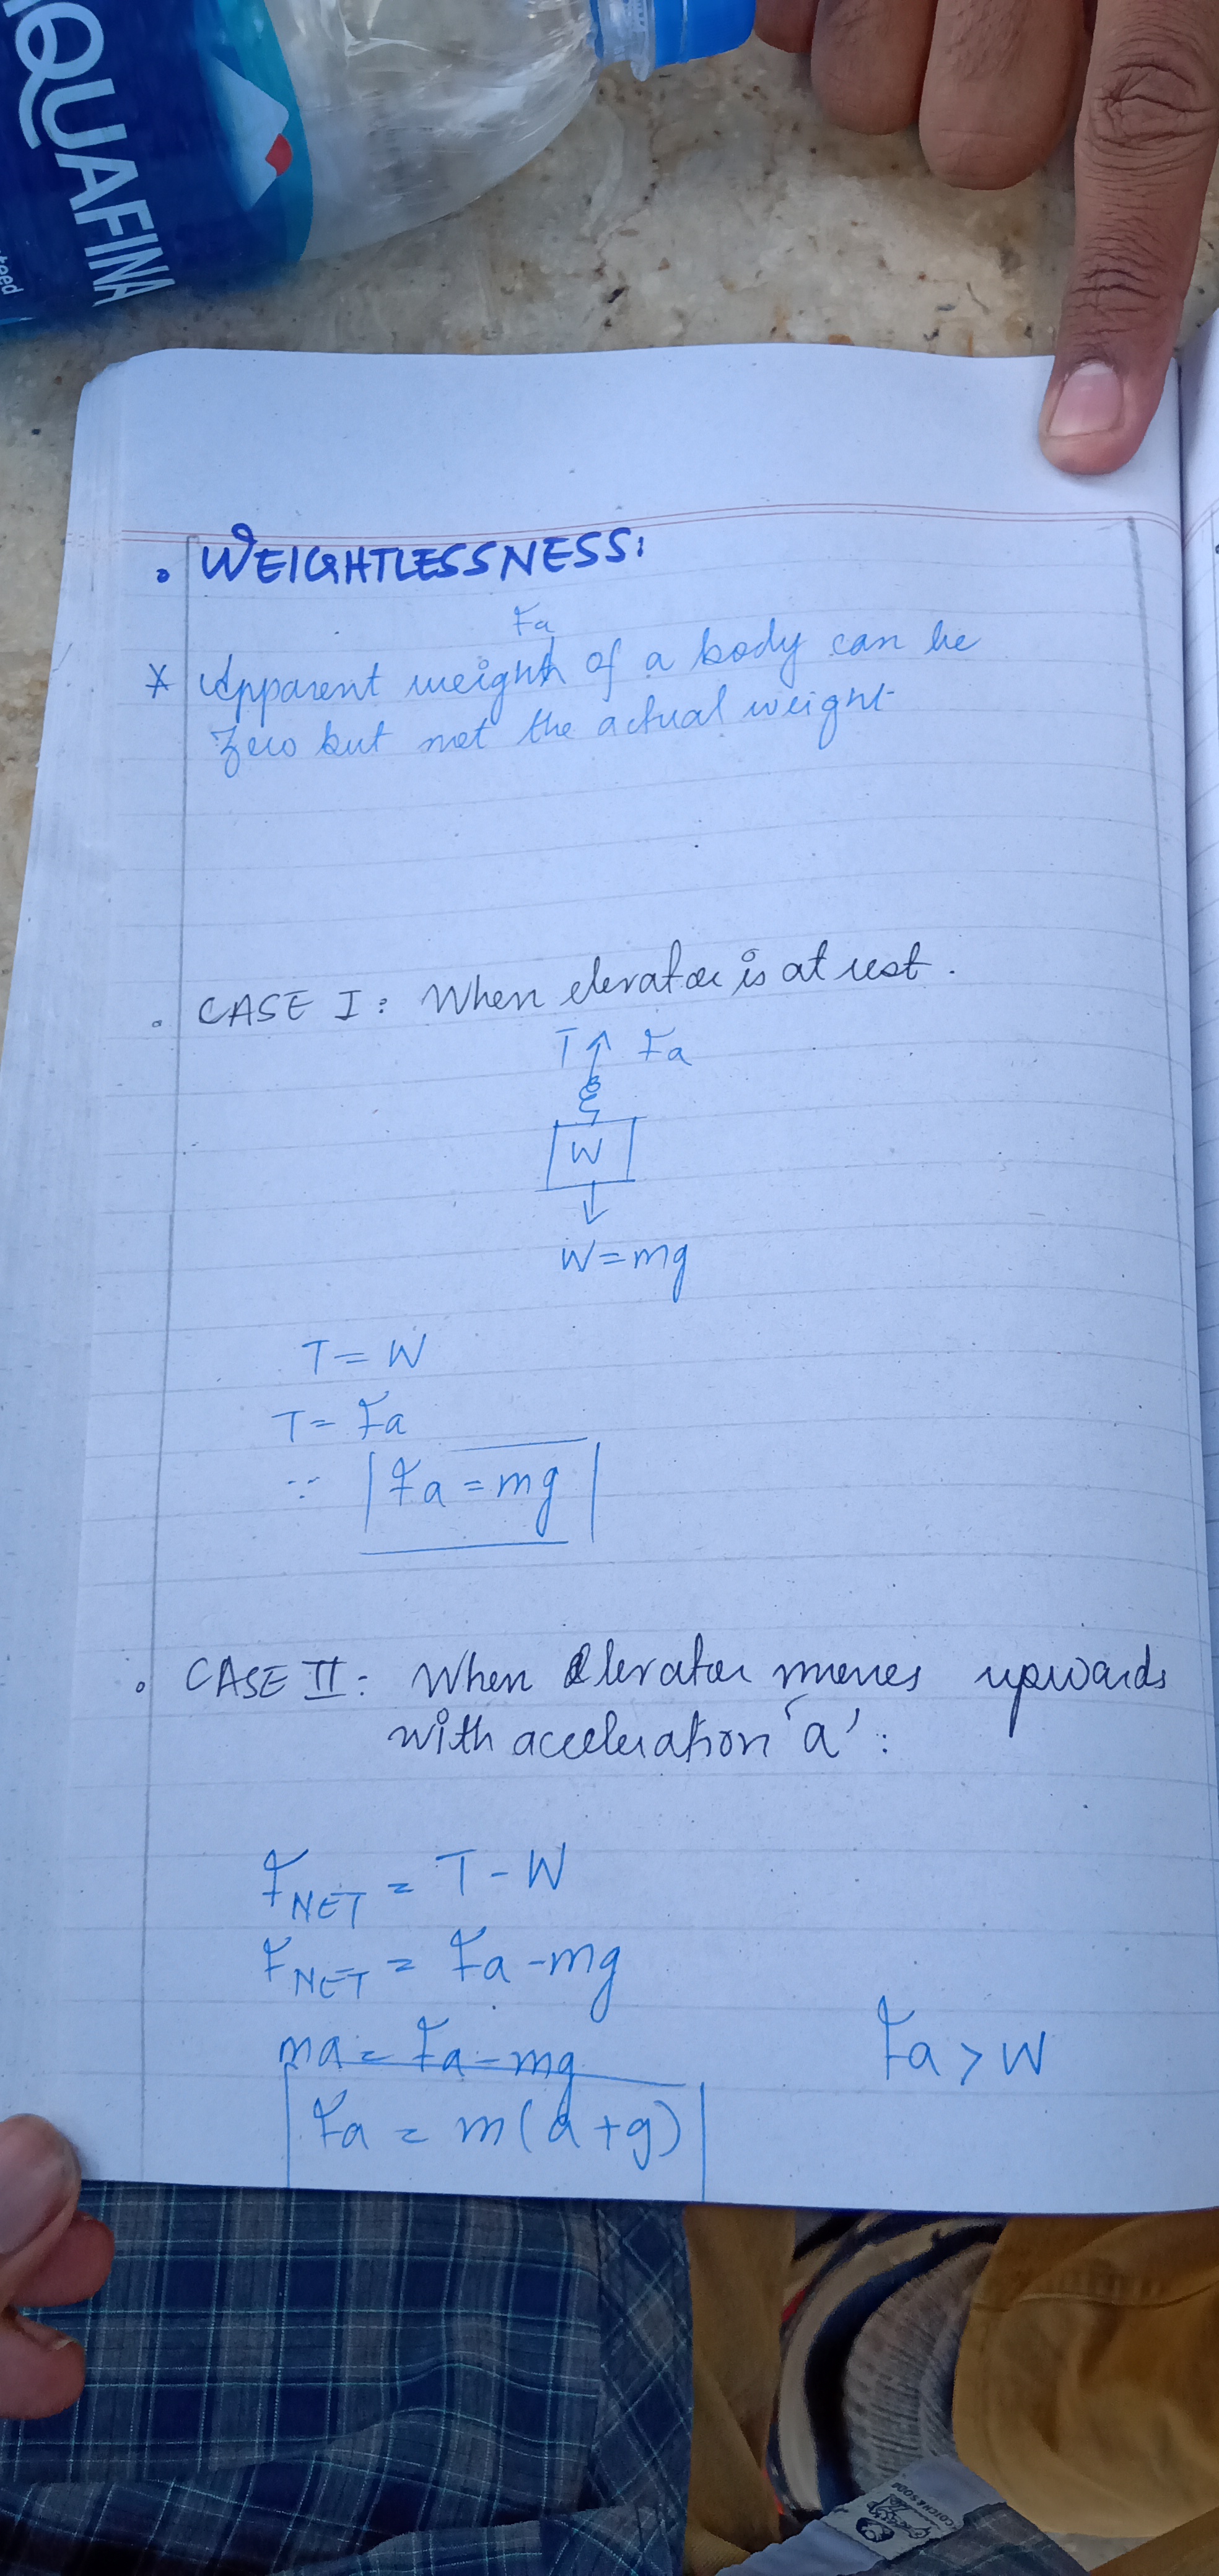 AQUAFINA
teed
WEIGHTLESSNESS:
Fa
* Apparent weight of a body can be
zero but not the actual weight
CASE I: When elevator is at rest.
T Fa
W
W=mg
T= W
T= Fa
∵ Fa = mg
CASE II: When elevator moves upwards
with acceleration 'a':
FNET = T-W
FNET = Fa-mg
ma = Fa-mg
Fa > W
Fa = m(a+g)